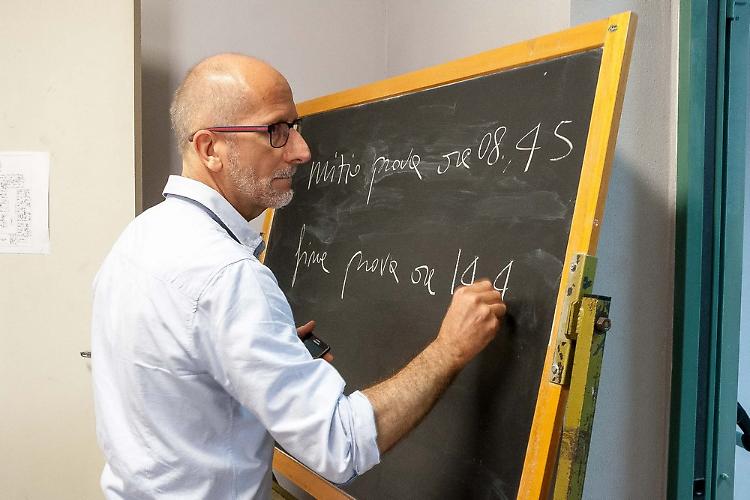 inizio prova ore 08.45
fine prova ore 14.4